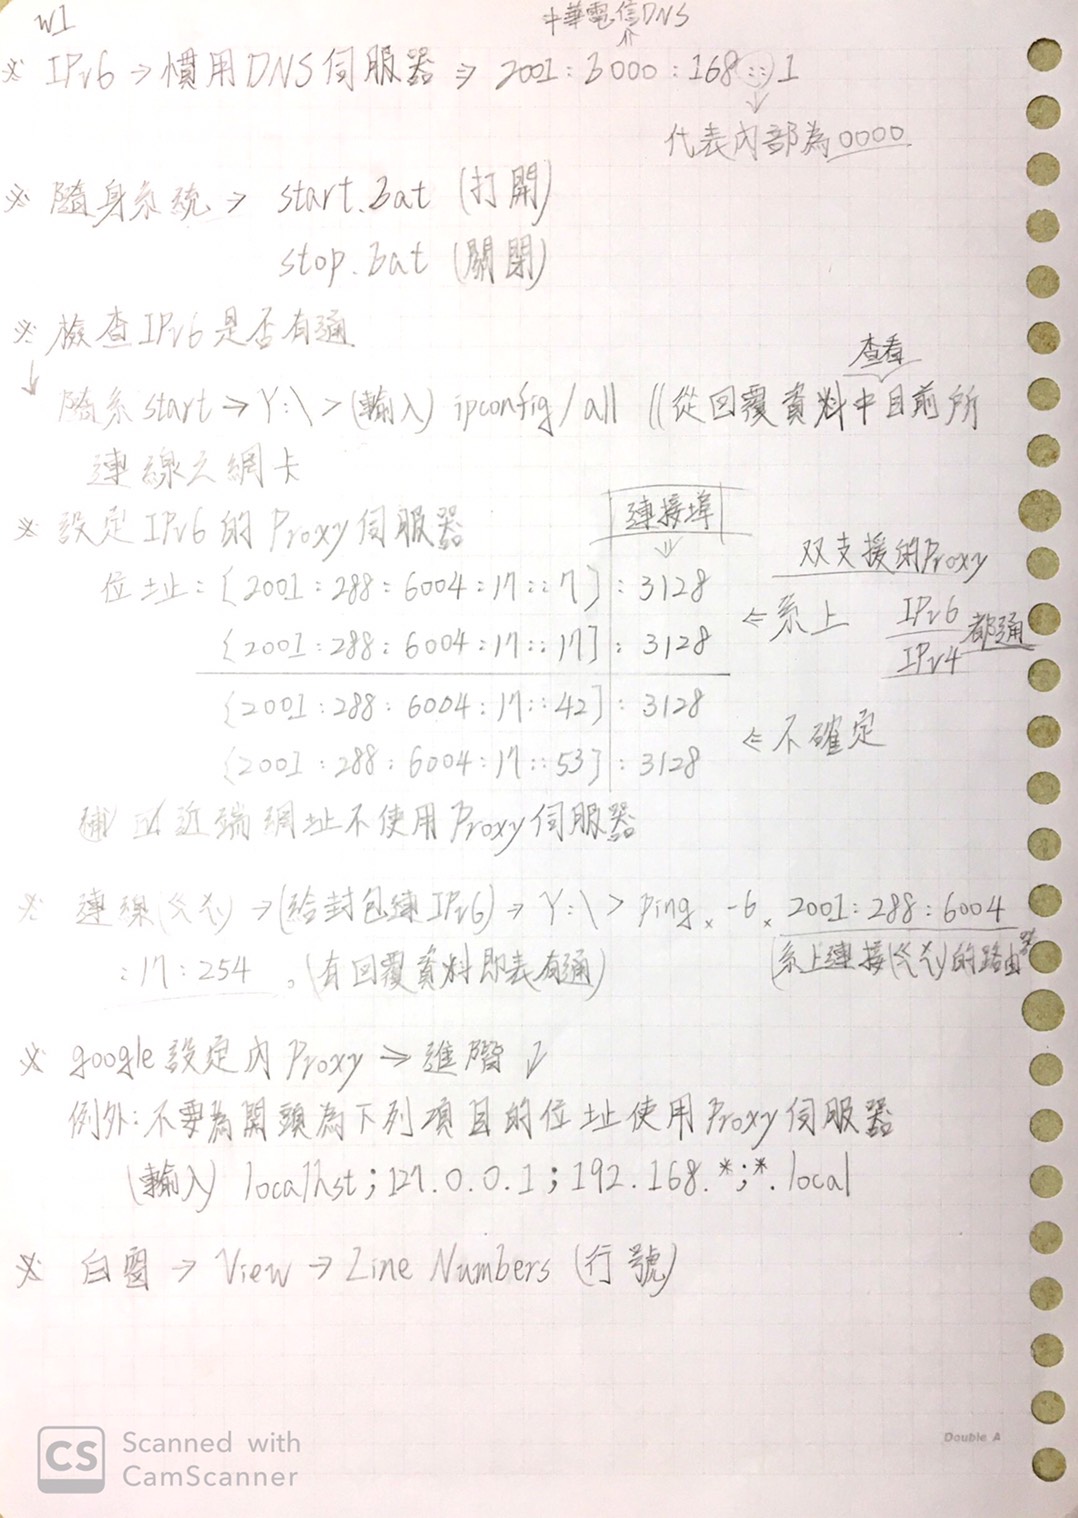 W1
中華電信DNS
※ IPv6 → 慣用DNS伺服器 ⇒ 2001:b000:168::1
代表內部為0000
※ 隨身系統 → start.bat (打開)
stop.bat (關閉)
※ 檢查IPv6是否有通
查看
隨系start → Y:\ > (輸入) ipconfig/all \\從回覆資料中目前所
連線之網卡
※ 設定IPv6的Proxy伺服器
連接埠
双支援的Proxy
位址:{2001:288:6004:17::7]:3128
{2001:288:6004:17::17]:3128
⇐系上 IPv6 都通
IPv4
{2001:288:6004:17::42]:3128
{2001:288:6004:17::53]:3128
⇐不確定
近端網址不使用Proxy伺服器
※ 連線(ㄍㄨㄟ) → (給封包練IPv6) → Y:\ > ping × -6 × 2001:288:6004
:17:254 。(有回覆資料即表有通)
(系上連接(ㄍㄨㄟ)的路由器
※ google設定內Proxy → 進階
例外:不要為開頭為下列項目的位址使用Proxy伺服器
(輸入) localhst;127.0.0.1;192.168.*;*.local
※ 白窗 → View → Line Numbers (行號)
CS Scanned with
CamScanner
Double A